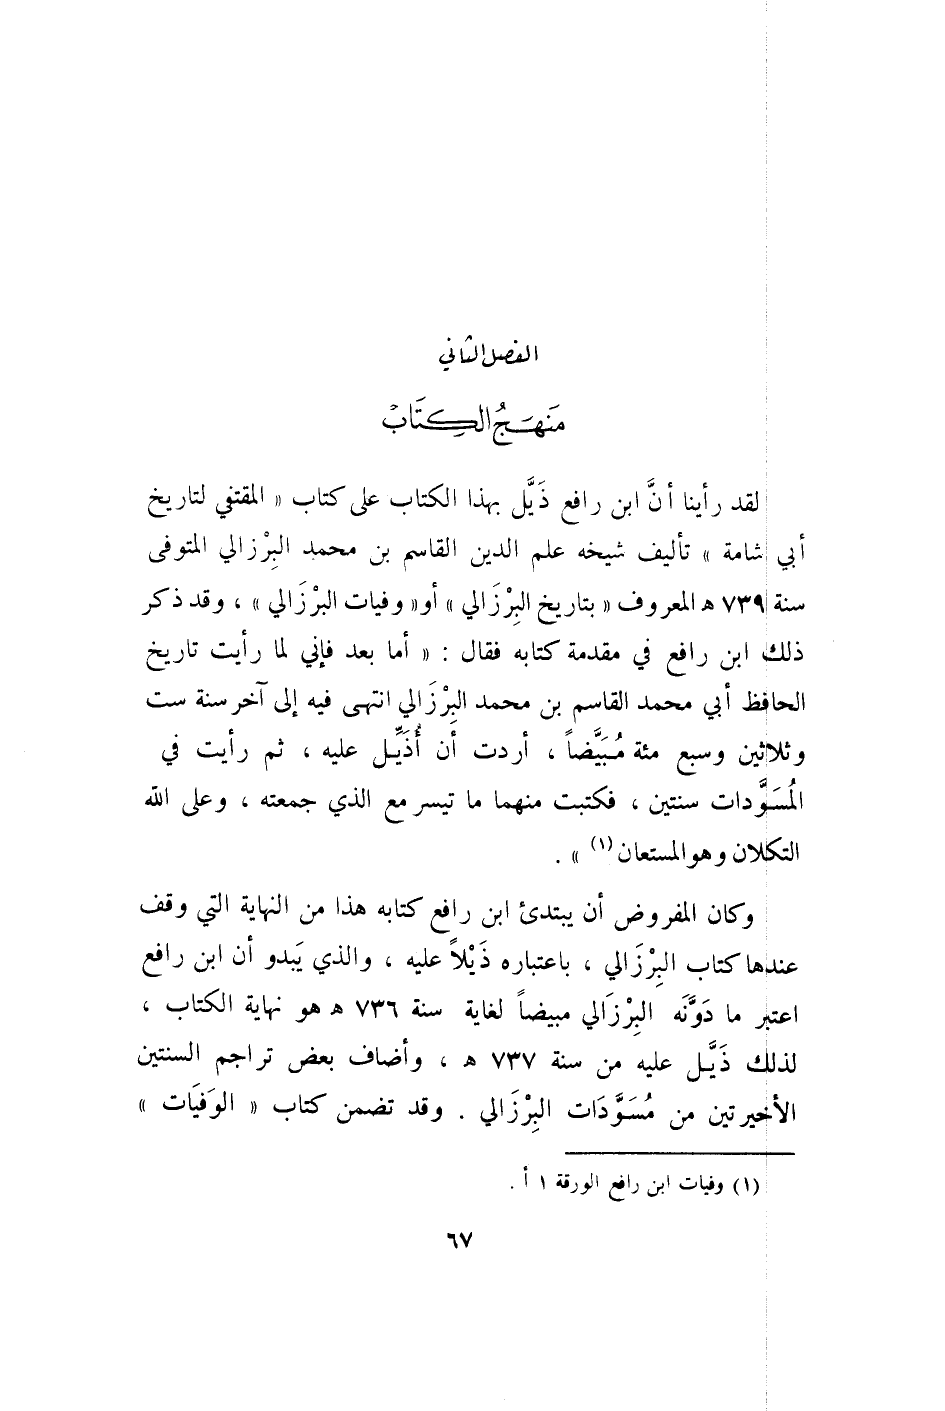 الفصل الثاني
مَنهَجُ الكِتَابْ
لقد رأينا أنَّ ابن رافع ذَيَّل بهذا الكتاب على كتاب « المقتفي لتاريخ
أبي شامة » تأليف شيخه علم الدين القاسم بن محمد البِرْزالي المتوفى
سنة ٧٣٩ هـ المعروف « بتاريخ البِرْزَالي » أو« وفيات البرْزَالي » ، وقد ذكر
ذلك ابن رافع في مقدمة كتابه فقال : « أما بعد فإني لما رأيت تاريخ
الحافظ أبي محمد القاسم بن محمد البِرْزَالي انتهى فيه إلى آخر سنة ست
وثلاثين وسبع مئة مُبَيَّضاً ، أردت أن أُذَيِّل عليه ، ثم رأيت في
المُسَوَّدات سنتين ، فكتبت منهما ما تيسر مع الذي جمعته ، وعلى الله
التكلان وهو المستعان(١) » .
وكان المفروض أن يبتدئ ابن رافع كتابه هذا من النهاية التي وقف
عندها كتاب البِرْزَالي ، باعتباره ذَيْلاً عليه ، والذي يَبدو أن ابن رافع
اعتبر ما دَوَّنَه البِرْزَالي مبيضاً لغاية سنة ٧٣٦ هـ هو نهاية الكتاب ،
لذلك ذَيَّل عليه من سنة ٧٣٧ هـ ، وأضاف بعض تراجم السنتين
الأخيرتين من مُسَوَّدَات البِرْزَالي . وقد تضمن كتاب « الوَفَيَات »
(١) وفيات ابن رافع الورقة ١ أ .
٦٧